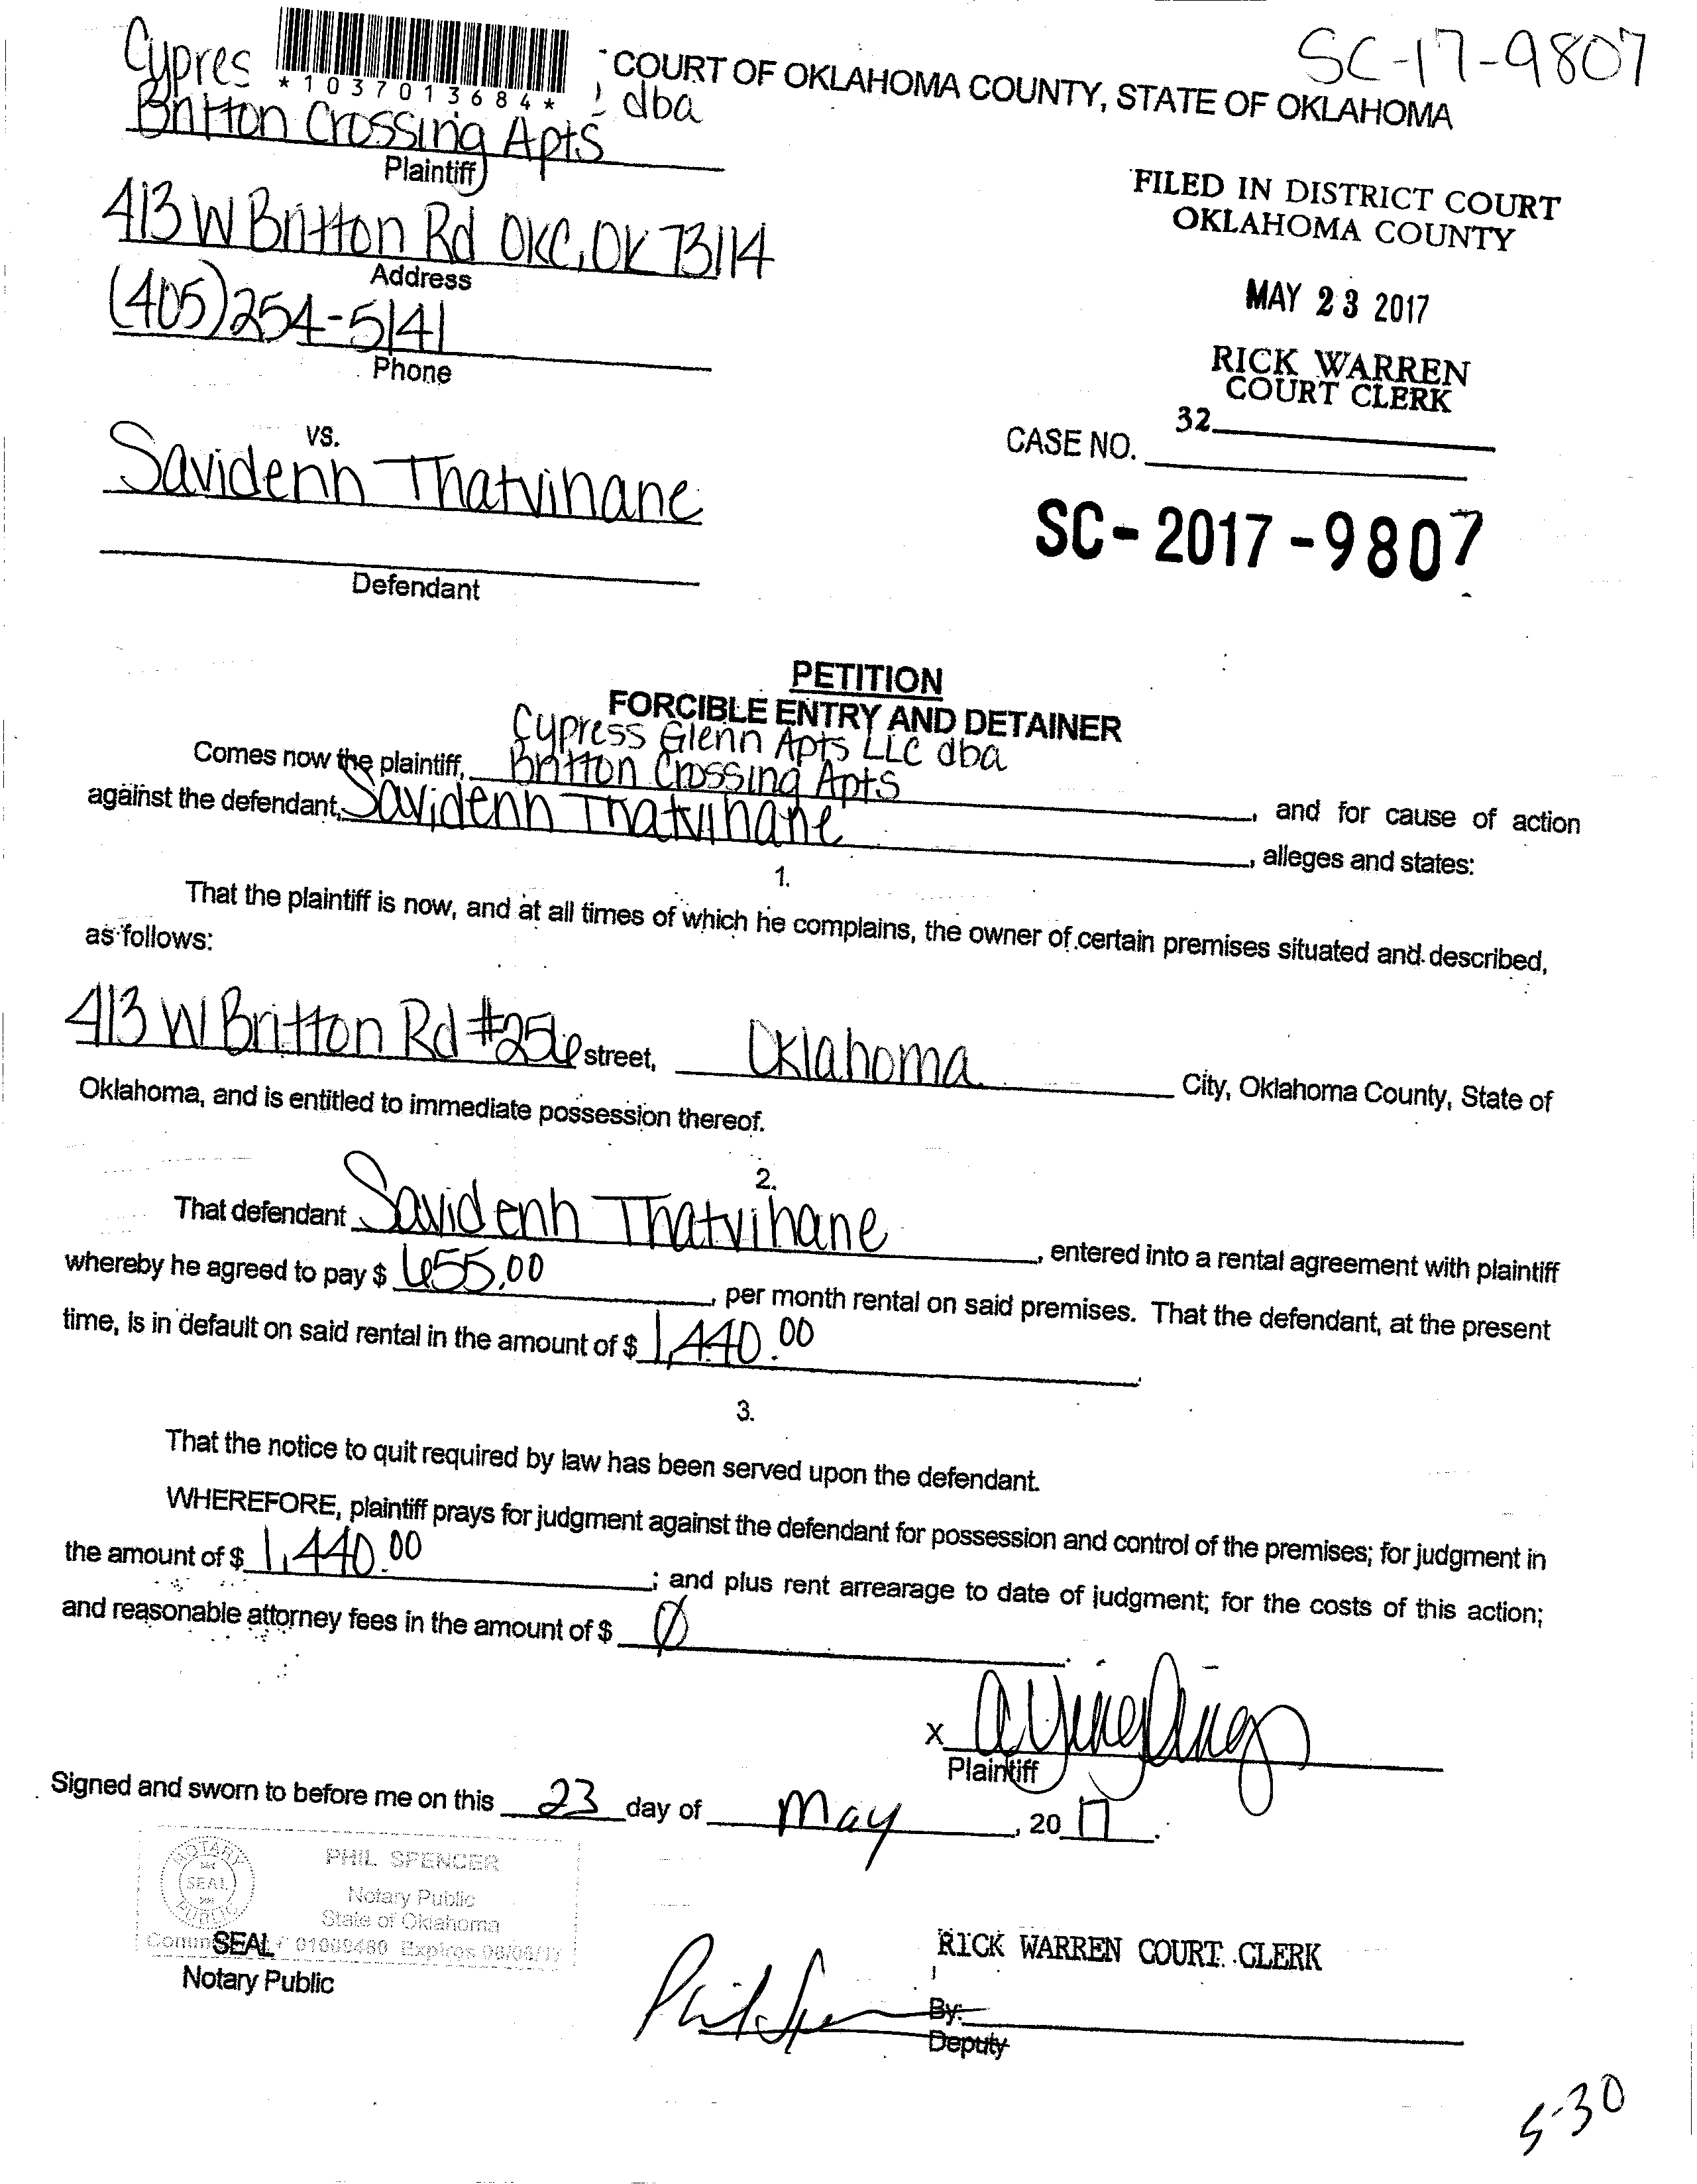 SC-17-9807
Cypres
*1037013684*
COURT OF OKLAHOMA COUNTY, STATE OF OKLAHOMA
dba
Britton Crossing Apts
Plaintiff
413 W Britton Rd OKC, OK 73114
Address
(405)254-5141
Phone
FILED IN DISTRICT COURT
OKLAHOMA COUNTY
MAY 23 2017
RICK WARREN
COURT CLERK
32
CASE NO.
SC-2017-9807
vs.
Savidenh Thatvihane
Defendant
PETITION
FORCIBLE ENTRY AND DETAINER
Cypress Glenn Apts LLC dba
Comes now the plaintiff, Britton Crossing Apts, and for cause of action
against the defendant, Savidenh Thatvihane, alleges and states:
1.
That the plaintiff is now, and at all times of which he complains, the owner of certain premises situated and described,
as follows:
413 W Britton Rd #256 street, Oklahoma City, Oklahoma County, State of
Oklahoma, and is entitled to immediate possession thereof.
2.
That defendant Savidenh Thatvihane, entered into a rental agreement with plaintiff
whereby he agreed to pay $ 655.00, per month rental on said premises. That the defendant, at the present
time, is in default on said rental in the amount of $ 1,440.00.
3.
That the notice to quit required by law has been served upon the defendant.
WHEREFORE, plaintiff prays for judgment against the defendant for possession and control of the premises; for judgment in
the amount of $ 1,440.00; and plus rent arrearage to date of judgment; for the costs of this action;
and reasonable attorney fees in the amount of $ Ø.
X
Plaintiff
Signed and sworn to before me on this 23 day of May, 2017.
NOTARY PUBLIC
SEAL
PHIL SPENCER
Notary Public
State of Oklahoma
SEAL
Notary Public
RICK WARREN COURT CLERK
Phil Spen
By:
Deputy
5-30